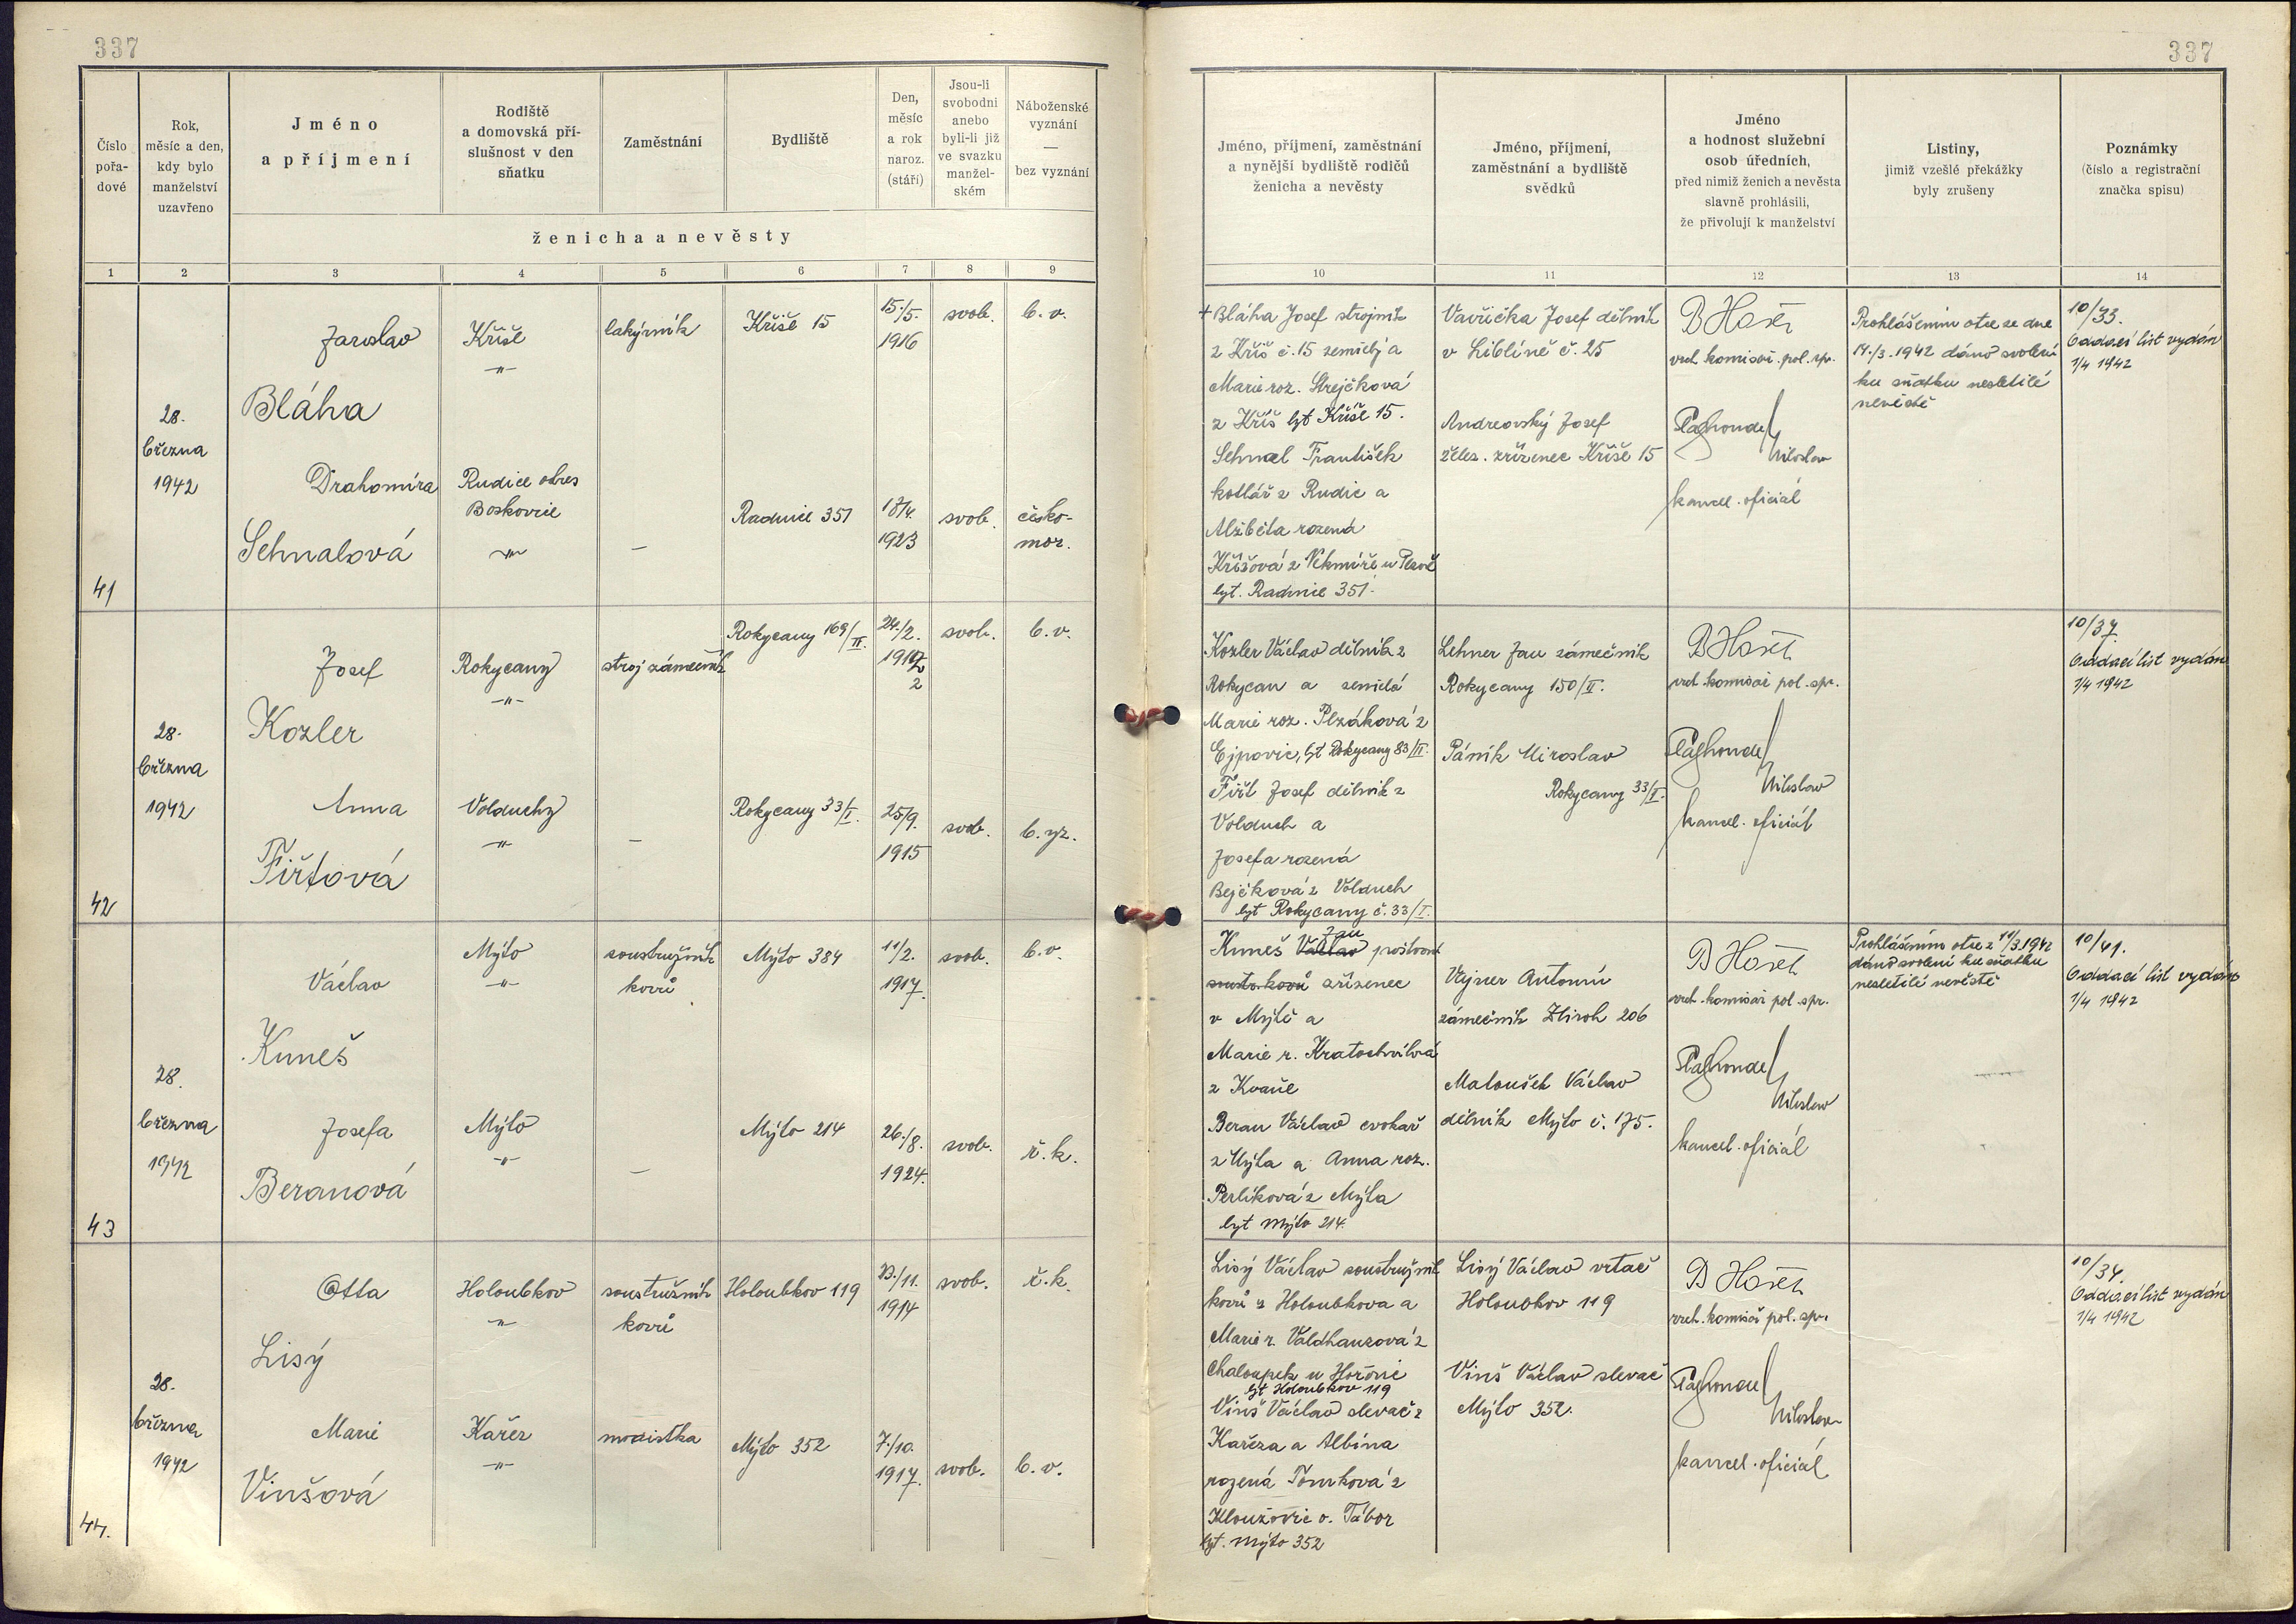 337
337
Číslo pořa- dové
Rok, měsíc a den, kdy bylo manželství uzavřeno
Jméno a příjmení
Rodiště a domovská pří- slušnost v den sňatku
Zaměstnání
Bydliště
Den, měsíc a rok naroz. (stáří)
Jsou-li svobodni anebo byli-li již ve svazku manžel- ském
Náboženské vyznání — bez vyznání
ženicha a nevěsty
Jméno, příjmení, zaměstnání a nynější bydliště rodičů ženicha a nevěsty
Jméno, příjmení, zaměstnání a bydliště svědků
Jméno a hodnost služební osob úředních, před nimiž ženich a nevěsta slavně prohlásili, že přivolují k manželství
Listiny, jimiž vzešlé překážky byly zrušeny
Poznámky (číslo a registrační značka spisu)
1 2 3 4 5 6 7 8 9 10 11 12 13 14
41
28. března 1942
Jaroslav
Bláha
Kříše
-"-
lakýrník
Kříše 15
15./5. 1916
svob.
b. v.
Drahomíra
Sehnalová
Rudice okres
Boskovice
-"-
—
Radnice 351
18/4. 1923
svob.
česko-
mor.
+ Bláha Josef strojník
z Kříš č. 15 zemřelý a
Marie roz. Strejčková
z Kříš byt Kříše 15.
Sehnal František
kotlář z Rudic a
Alžběta rozená
Křížová z
byt. Radnice 351.
Vavřička Josef dělník
v Liblíně č. 25
Andreovský Josef
želez. zřízenec Kříše 15
vrch. komisař. pol. spr.
Miloslav
kancel. oficiál
Prohlášením otce ze dne
14./3. 1942 dáno svolení
ku sňatku nezletilé
nevěstě
10/33.
Oddací list vydán
1/4 1942
42
28. března 1942
Josef
Kozler
Rokycany
-"-
stroj. zámečník
Rokycany 169/II.
24./2. 1912
2
svob.
b. v.
Anna
Fiřtová
Volduchy
-"-
—
Rokycany 33/I.
25/9. 1915
svob.
b. vz.
Kozler Václav dělník z
Rokycan a zemřelá
Marie roz. Plzáková z
Ejpovic, byt Rokycany 83/II.
Fiřt Josef dělník z
Volduch a
Josefa rozená
Bejčková z Volduch
byt Rokycany č. 33/I.
Lehner Jan zámečník
Rokycany 150/II.
Páník Miroslav
Rokycany 33/I.
vrch. komisař pol. spr.
Miloslav
kancel. oficiál
10/37.
Oddací list vydán
1/4 1942
43
28. března 1942
Václav
Kuneš
Mýto
-"-
soustružník
kovů
Mýto 384
11/2. 1917.
svob.
b. v.
Josefa
Beranová
Mýto
-"-
—
Mýto 214
26./8. 1924.
svob.
ř. k.
Jan
Kuneš Václav poštovní
soustr. kovů zřízenec
v Mýtě a
Marie r. Kratochvílová
z Kvaně
Beran Václav cvokař
z Mýta a Anna roz.
Perlíková z Mýta
byt Mýto 214.
Vejner Antonín
zámečník Zbiroh 206
Matoušek Václav
dělník Mýto č. 175.
vrch. komisař pol. spr.
Miloslav
kancel. oficiál
Prohlášením otce z 11/3.1942
dáno svolení ku sňatku
nezletilé nevěstě
10/41.
Oddací list vydán
1/4 1942
44.
28. března 1942
Otta
Lisý
Holoubkov
-"-
soustružník
kovů
Holoubkov 119
23./11. 1914
svob.
ř. k.
Marie
Vinšová
Kařez
-"-
modistka
Mýto 352
7./10. 1917.
svob.
b. v.
Lisý Václav soustružník
kovů z Holoubkova a
Marie r. Valdhauzová z
Chaloupek u Hořovic
byt Holoubkov 119
Vinš Václav slevač z
Kařeza a Albína
rozená Tomková z
o. Tábor
byt. Mýto 352
Lisý Václav vrtač
Holoubkov 119
Vinš Václav slevač
Mýto 352.
vrch. komisař pol. spr.
Miloslav
kancel. oficiál
10/34.
Oddací list vydán
1/4 1942